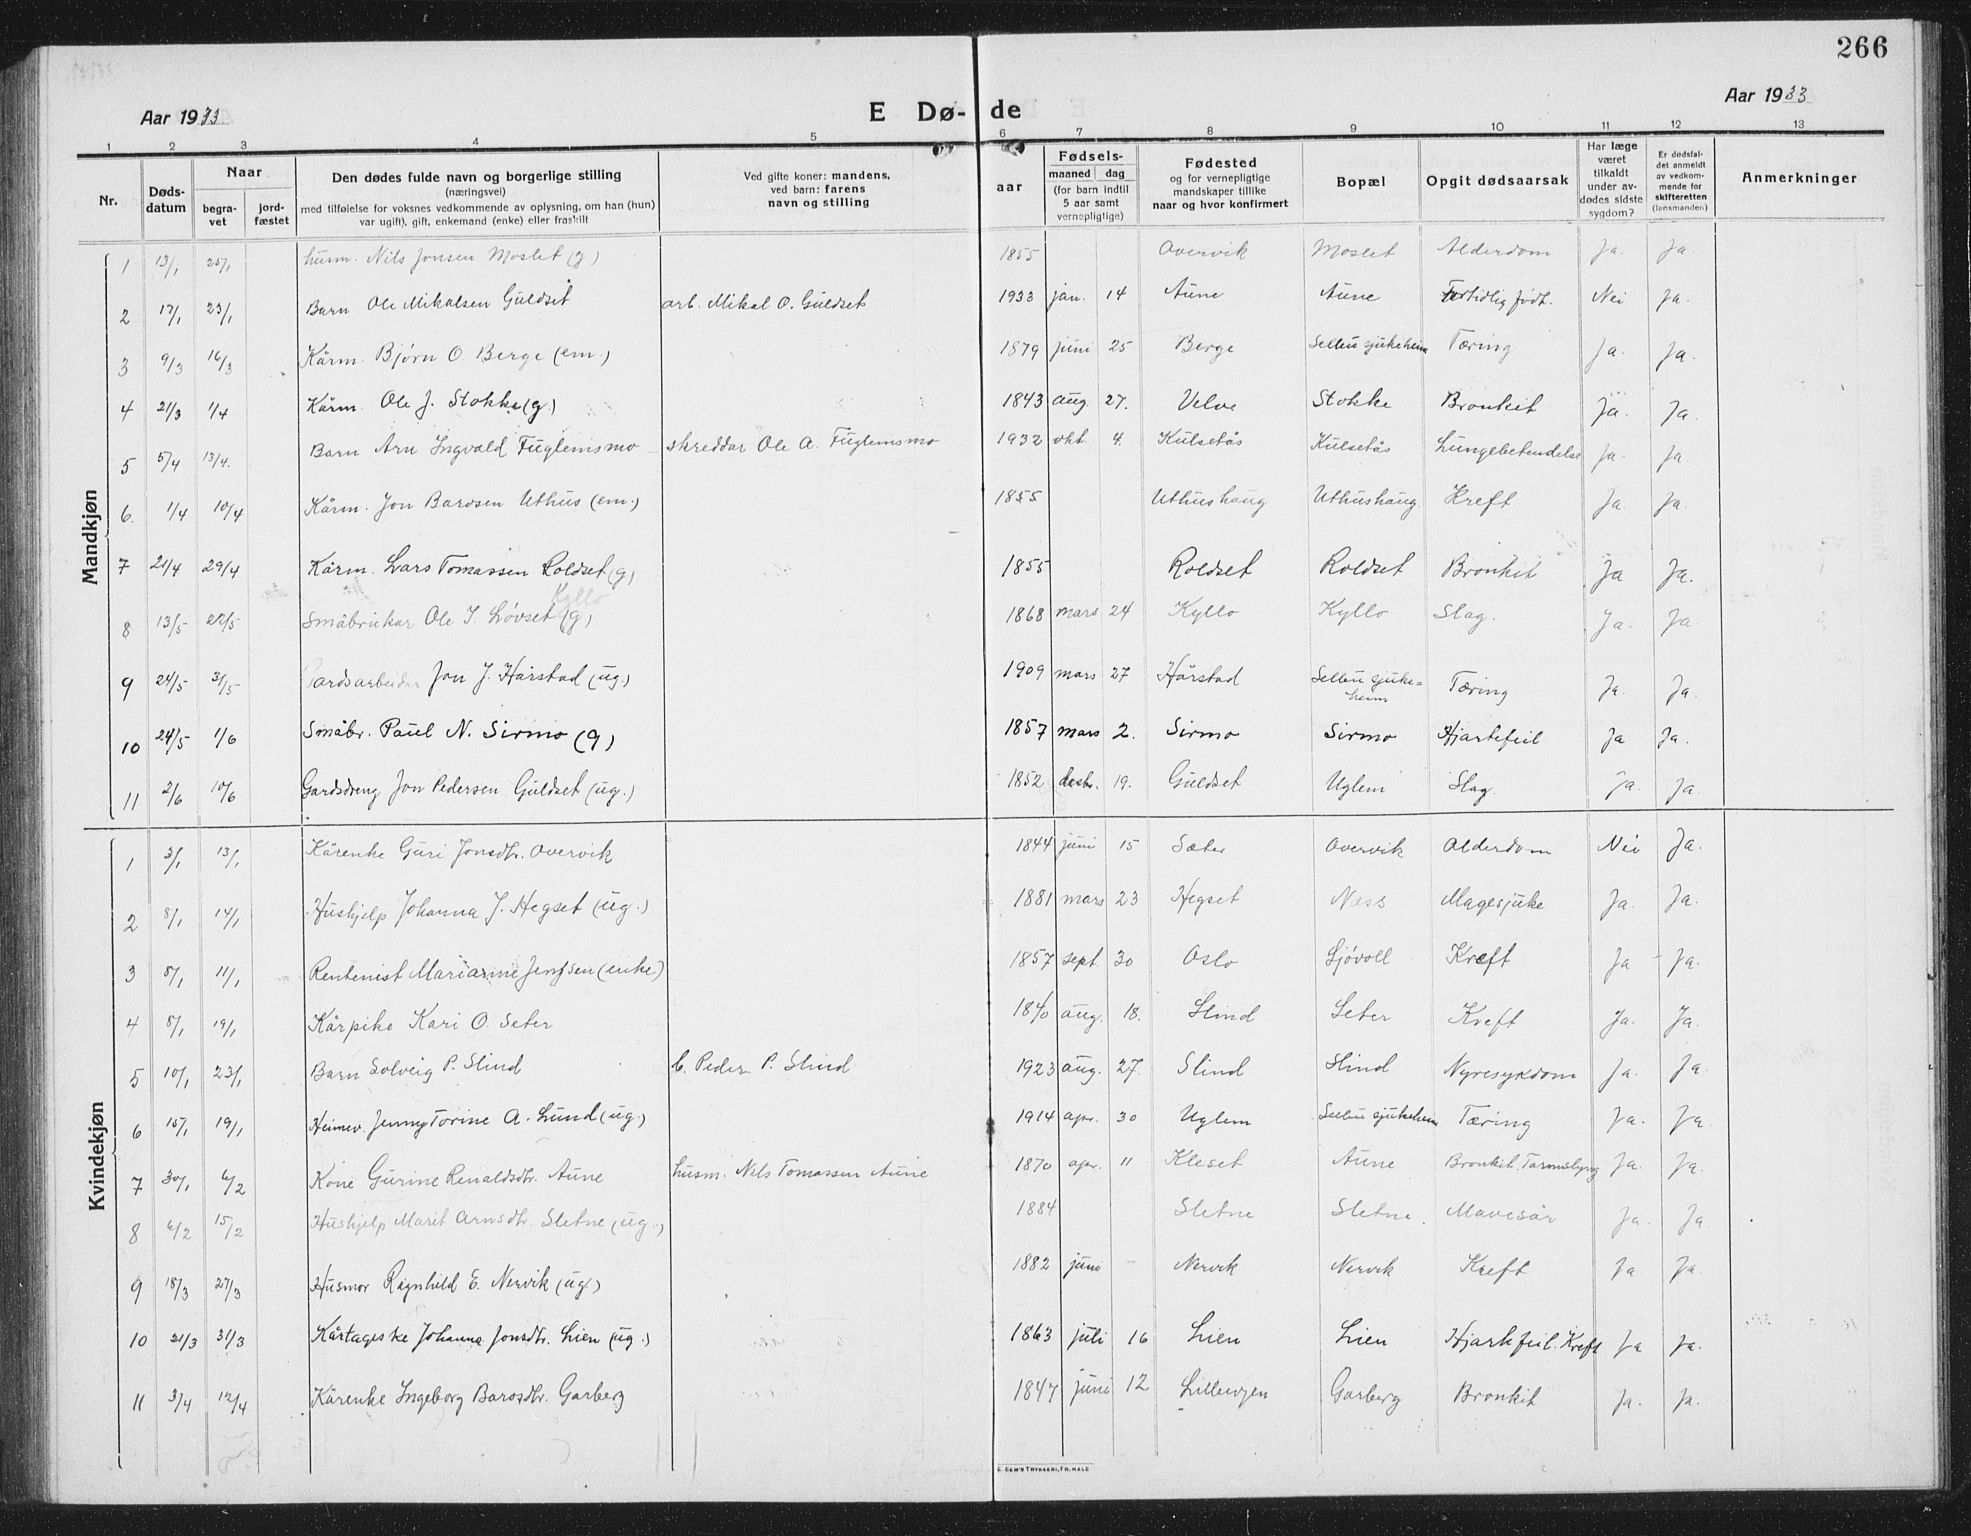 266
Aar 1933 E Dø- de Aar 1933
1 2 3 4 5 6 7 8 9 10 11 12 13
Nr. Døds-datum Naar begra-vet jord-fæstet Den dødes fulde navn og borgerlige stilling (næringsvei) med tilføielse for voksnes vedkommende av oplysning, om han (hun) var ugift), gift, enkemand (enke) eller fraskilt Ved gifte koner: mandens, ved barn: farens navn og stilling aar Fødsels- maaned dag (for barn indtil 5 aar samt vernepligtige) Fødested og for vernepligtige mandskaper tillike naar og hvor konfirmert Bopæl Opgit dødsaarsak Har læge været tilkaldt under av-dødes sidste sygdom? Er dødsfal-det anmeldt av vedkom-mende for skifteretten (lensmanden) Anmerkninger
Mandkjøn
1 13/1 25/1 husm. Nils Jonsen Moslet (g) 1855 Overvik Moslet Alderdom Ja. Ja.
2 17/1 23/1 Barn Ole Mikalsen Guldset arb. Mikal O. Guldset 1933 jan. 14 Aune Aune Fortidlig født. Nei Ja.
3 9/3 16/3 Kårm. Bjørn O. Berge (em.) 1879 juni 25 Berge Selbu sjukeheim Tæring Ja. Ja.
4 21/3 1/4 Kårm. Ole J. Stokke (g.) 1843 aug. 27. Velve Stokke Bronkit Ja. Ja.
5 5/4 13/4. Barn Arn Ingvald Fuglemsmo skreddar Ole A. Fuglemsmo 1932 okt. 4. Kulsetås Kulsetås Lungebetendelse Ja. Ja.
6. 1/4 10/4 Kårm. Jon Bardsen Uthus (em.) 1855 Uthushaug Uthushaug Kreft Ja. Ja.
7 21/4 29/4 Kårm. Lars Tomassen Roldset (g) 1855 Roldset Roldset Bronkit Ja Ja.
Kyllo
8 13/5 22/5 Småbrukar Ole J. Løvset (g) 1868 mars 24 Kyllo Kyllo Slag. Ja. Ja
9 24/5 31/5 Gardsarbeidar Jon J. Hårstad (ug.) 1909 mars 27 Hårstad Selbu sjuke=heim Tæring Ja. Ja.
10 24/5 1/6 Småbr. Paul N. Sirmo (g) 1857 mars 2. Sirmo Sirmo Hjartefeil Ja Ja.
11 2/6 10/6 Gardsdreng Jon Pedersen Guldset (ug.) 1852 desbr. 19. Guldset Uglem Slag. Ja. Ja.
Kvindekjøn
1 3/1 13/1 Kårenke Guri Jonsdtr. Overvik 1844 juni 15 Sæter Overvik Alderdom Nei Ja.
2 8/1 14/1 Hushjelp Johanna J. Hegset (ug.) 1881 mars 23 Hegset Næss Magesjuke Ja. Ja.
3 8/1 11/1 Rentenist Marianne Jenssen (enke) 1857 sept. 30 Oslo Sjøvoll Kreft Ja Ja.
4 8/1 19/1 Kårpike Kari O. Seter 1840 aug. 18. Slind Seter Kreft Ja. Ja.
5 10/1 23/1 Barn Solveig P. Slind b. Peder P. Slind 1923 aug. 27. Slind Slind Nyresykdom Ja. Ja.
6 15/1 19/1 Heimev. Jenny Torine A. Lund (ug.) 1914 apr. 30 Uglem Selbu sjukeheim Tæring Ja. Ja
7 30/1 6/2 Kone Gurine Renaldsdtr. Aune husm. Nils Tomassen Aune 1870 apr. 11 Kleset Aune Bronkit, Tarmslyng Ja. Ja.
8 6/2 15/2 Hushjelp Marit Arnsdtr. Sletne (ug.) 1884 Sletne Sletne. Mavesår Ja. Ja.
9 18/3 27/3 Husmor Ragnhild E. Nervik (ug.) 1882 juni - Nervik Nervik Kreft Ja Ja.
10 21/3 31/3 Kårtageske Johanna Jonsdtr. Lien (ug.) 1863 juli 16 Lien Lien Hjartefeil. Kreft Ja Ja.
11 3/4 12/4 Kårenke Ingeborg Barosdtr. Garberg 1847 juni 12 Lillevjen Garberg Bronkit Ja. Ja.
E. SEM'S TRYKKERI, FR.HALD